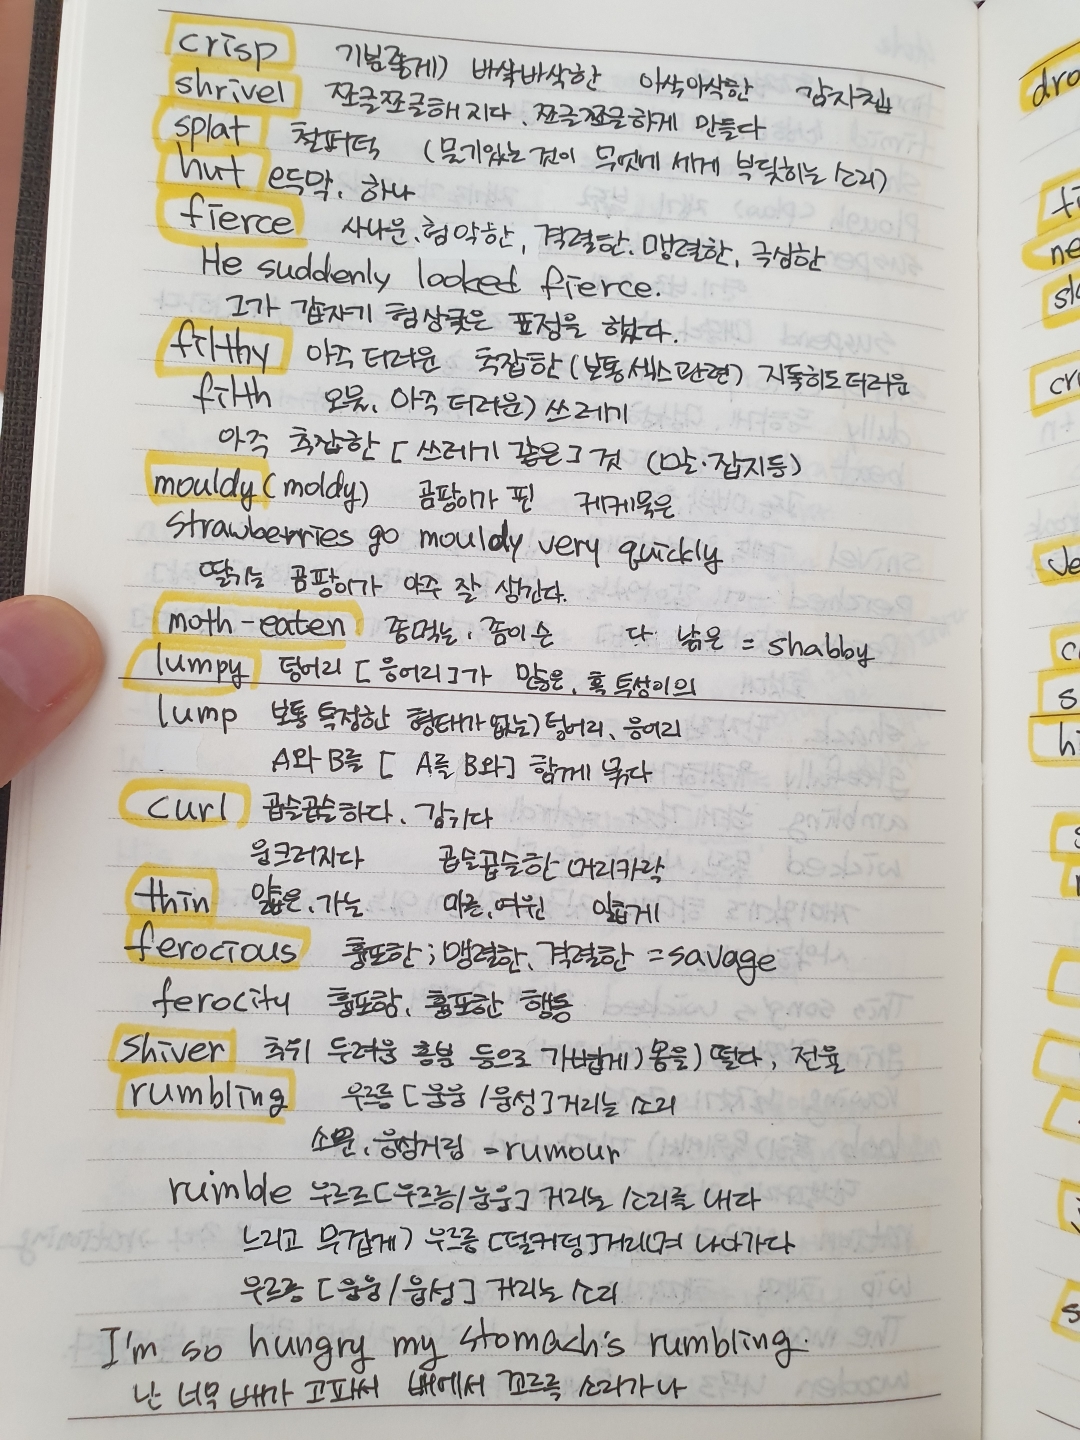 crisp 기분좋게) 바삭바삭한 아삭아삭한 감자칩
shrivel 쪼글쪼글해지다. 쪼글쪼글하게 만들다
splat 철퍼턱 (물기있는 것이 무엇에 세게 부딪히는 소리)
hut 오두막, 하나
fierce 사나운, 험악한, 격렬한. 맹렬한, 극심한
He suddenly looked fierce.
그가 갑자기 험상궂은 표정을 했다.
filthy 아주 더러운 추잡한 (보통 섹스관련) 지독히도 더러운
filth 오물, 아주 더러운) 쓰레기
아주 추잡한 [쓰레기 같은] 것 (말·잡지등)
mouldy (moldy) 곰팡이가 핀 케케묵은
strawberries go mouldy very quickly
딸기는 곰팡이가 아주 잘 생긴다.
moth-eaten 좀먹는, 좀이 슨 다 낡은 = shabby
lumpy 덩어리 [응어리]가 많은, 혹 투성이의
lump 보통 특정한 형태가 없는) 덩어리, 응어리
A와 B를 [A를 B와] 함께 묶다
curl 곱슬곱슬하다, 감기다
웅크러지다 곱슬곱슬한 머리카락
thin 얇은, 가는 마른, 여윈 얇게
ferocious 흉포한; 맹렬한, 격렬한 = savage
ferocity 흉포함, 흉포한 행동
shiver 추위 두려움 흥분 등으로 가볍게) 몸을) 떨다, 전율
rumbling 우르릉 [웅웅/웅성] 거리는 소리
소문, 웅성거림 = rumour
rumble 우르르 [우르릉/웅웅] 거리는 소리를 내다
느리고 무겁게) 우르릉 [덜커덩] 거리며 나아가다
우르릉 [웅웅/웅성] 거리는 소리
I'm so hungry my stomach's rumbling.
난 너무 배가 고파서 배에서 꼬르륵 소리가 나